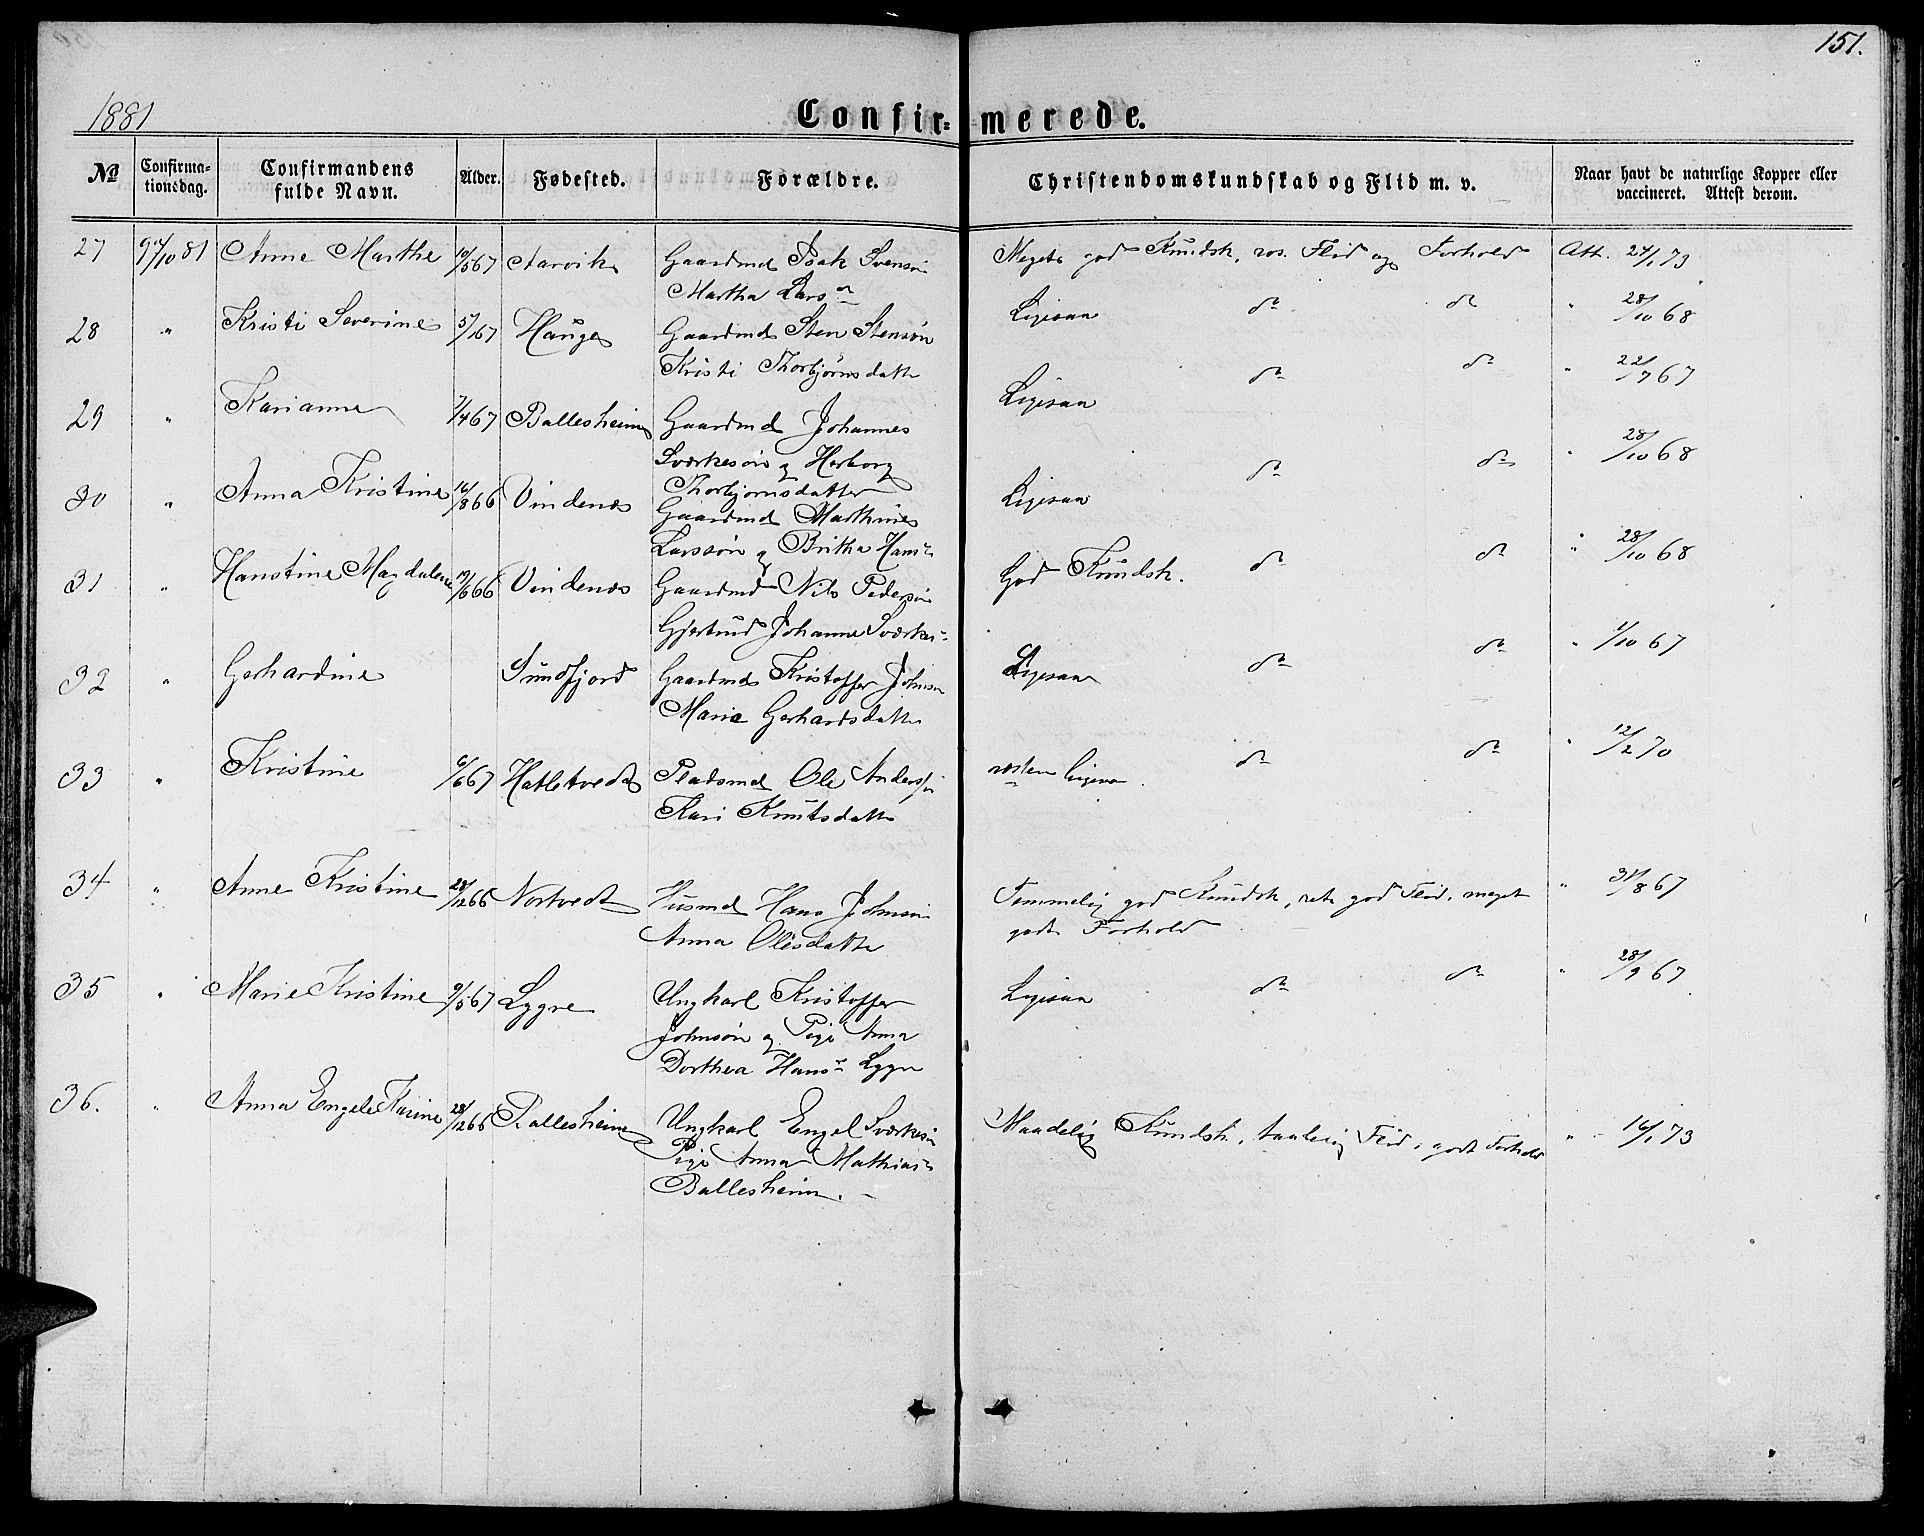 151.
1881
Confir- merede.
No
Confirma-
tionsdag.
Confirmandens
fulde Navn.
Alder.
Fødested.
Forældre.
Christendomskundskab og Flid m. v.
Naar havt de naturlige Kopper eller
vaccineret. Attest derom.
27 9/10 81 Anne Marthe 10/5 67 Aarvik Gaardmd Isak Svensøn Meget god Kundsk, ros. Flid og Forhold Att. 24/1 73
Martha Larsdr
28 " Kristi Severine 5/1 67 Hauge Gaardmd Sten Stensøn Ligesaa do do " 28/10 68
Kristi Thorbjørnsdatter
29 " Karianne 7/4 67 Ballesheim Gaardmd Johannes Ligesaa do do " 22/7 67
Sværkesøn og Herborg
Thorbjørnsdatter
30 " Anna Kristine 16/8 66 Vindenes Gaardmd Mathias Ligesaa do do " 28/10 68
Larssøn og Britha Hans
31 " Hanstine Magdalene 19/6 66 Vindenes Gaardmd Nils Pedersøn God Kundsk. do do " 28/10 68
Gjertrud Johanne Sværkes
32 " Gerhardine Sundfjord Gaardmd Kristoffer Johnsøn Ligesaa do do " 1/10 67
Maria Gerhardsdatter
33 " Kristine 6/6 67 Hatletvedt Pladsmd Ole Anderssøn næsten Ligesaa do do " 12/2 70
Kari Knutsdatter
34 " Anne Kristine 28/12 66 Nortvedt Husmd Hans Johnsøn Temmelig god Kundsk, ret god Flid, meget " 31/8 67
Anna Olesdatter godt Forhold
35 " Marie Kristine 9/5 67 Lygre Ungkarl Kristoffer Ligesaa do do " 28/9 67
Johnsøn og Pige Anna
Dorthea Hansdr Lygre
36. " Anna Engele Karine 28/12 66 Ballesheim Ungkarl Engel Sværkesøn Maadelig Kundsk, taalelig Flid, godt Forhold " 16/1 73
Pige Anna Mathias
Ballesheim.